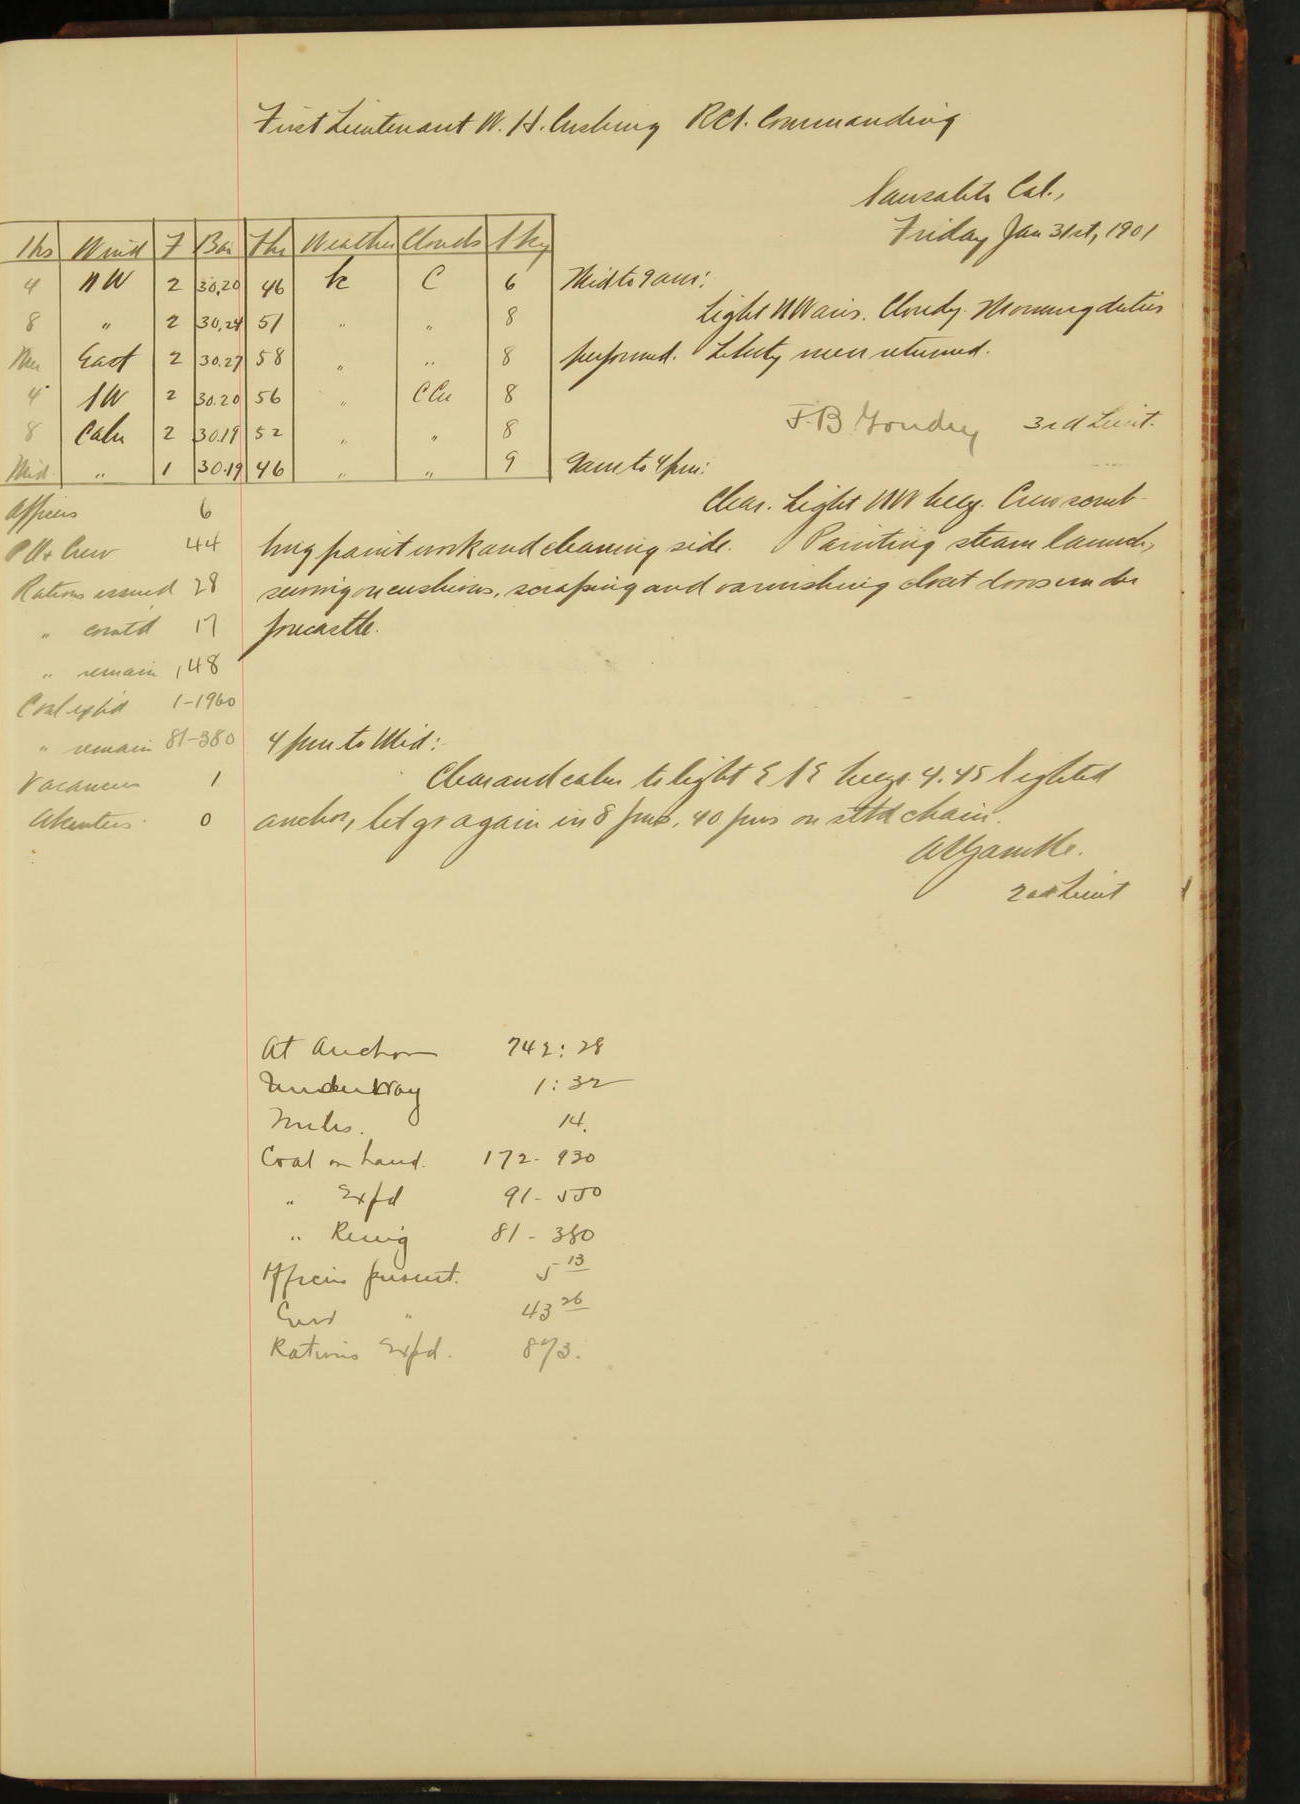 First Lieutenant W. H. Cushing RCS. Commanding
Sausalito Cal.,
Friday Jan 31st, 1901
Hrs Wind F Bar Thr Weather Clouds Sky
4 NW 2 30,20 46 bc C 6
8 " 2 30,24 51 " " 8
Mer East 2 30.27 58 " " 8
4 SW 2 30.20 56 " C Cu 8
8 Calm 2 30.19 52 " " 8
Mid. " 1 30.19 46 " " 9
Mid to 9 am:
Light NW airs. Cloudy. Morning duties
performed. Liberty men returned.
3rd Lieut.
9 am to 4 pm:
Clear. Light NW breeze. Crew scrub-
bing paint work and cleaning side. Painting steam launch,
sewing on cushions, scraping and varnishing closet doors under
forecastle.
4 pm to Mid:
Clear and calm to light ESE breeze. 4.45 sighted
anchor, let go again in 8 fms, 40 fms on stbd chain.
2nd Lieut
Officers 6
P.O. & Crew 44
Rations issued 28
" comt'd 17
" remain 148
Coal exp'd 1-1960
" remain 81-380
Vacancies 1
Absentees 0
At Anchor 742:28
Under Way 1:32
Miles. 14.
Coal on hand. 172-930
" Expd 91-550
" Remg 81-380
Officers present. 5 13
Crew " 43 26
Rations Expd. 873.